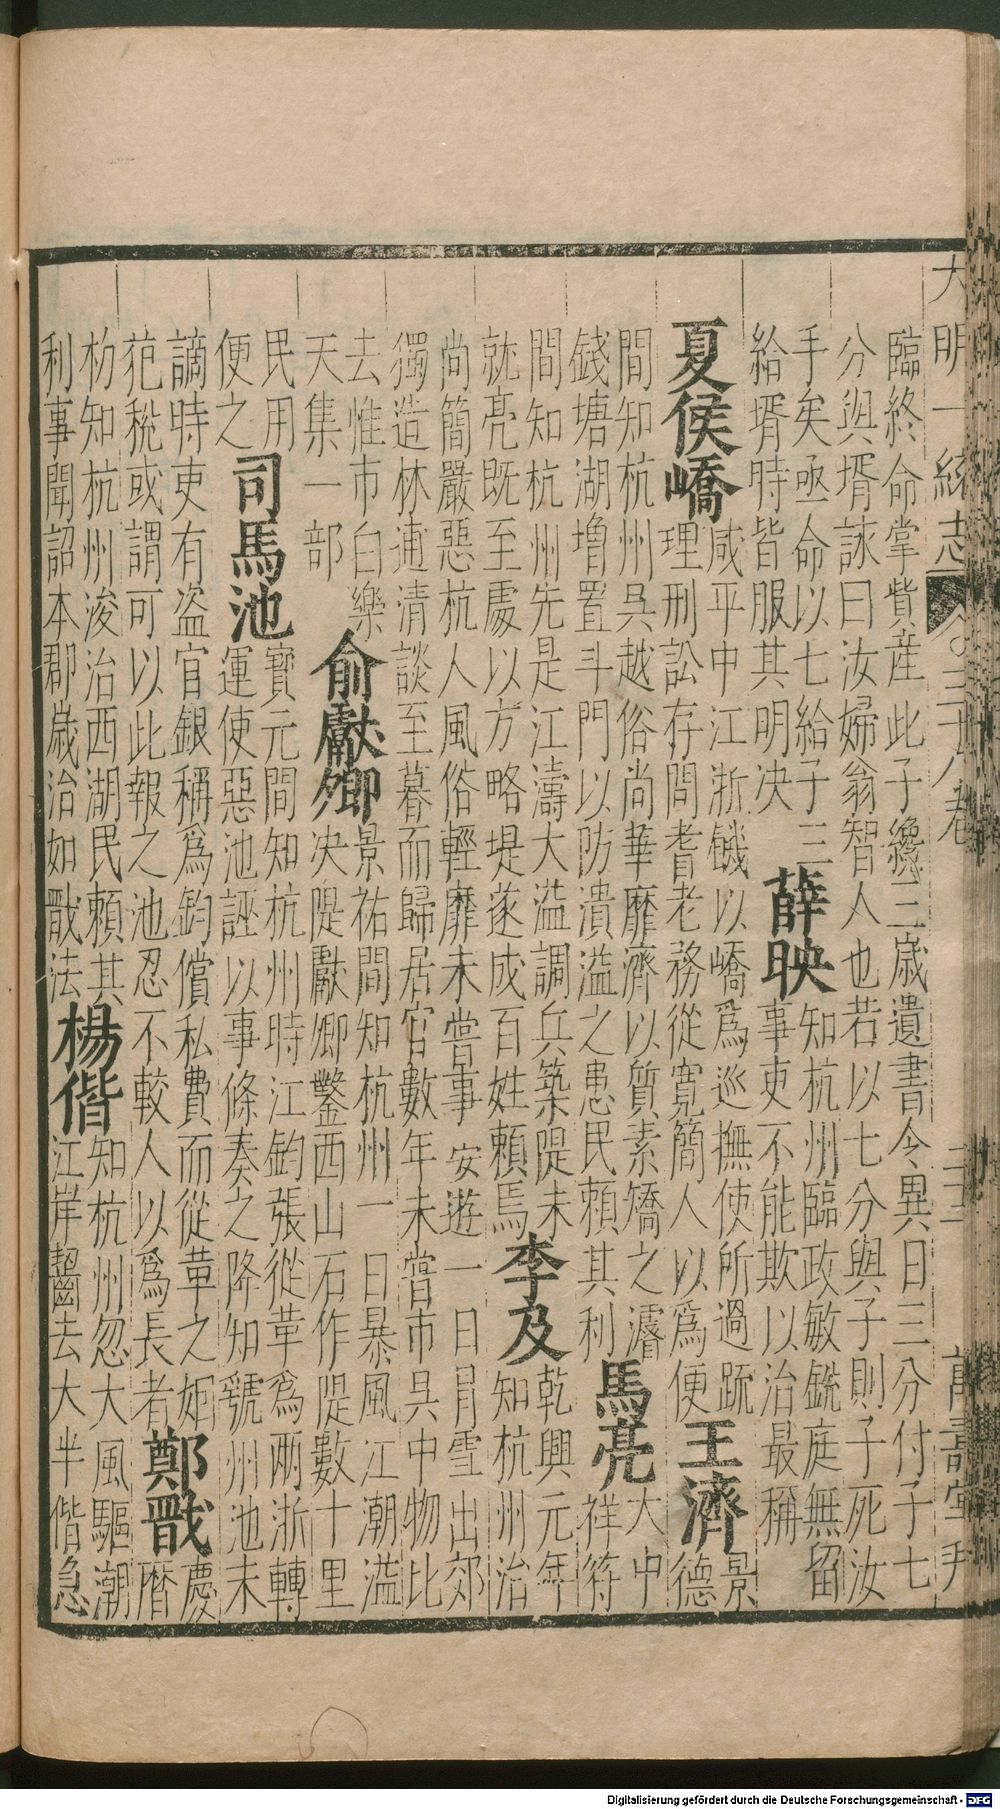 大明一統志 三十八卷 三十一 萬壽堂刋
臨終命掌貲産此子纔三歲遺書令異日三分付子七
分與壻詠曰汝婦翁智人也若以七分與子則子死汝
手矣亟命以七給子三
給壻時皆服其明决
薛映
知杭州臨政敏銳庭無留
事吏不能欺以治最稱
夏侯嶠
咸平中江浙饑以嶠爲巡撫使所過䟽
理刑訟存問耆老務從寛簡人以爲便
王濟
景
德
間知杭州吳越俗尚華靡濟以質素矯之濬
錢塘湖増置斗門以防潰溢之患民賴其利
馬亮
大中
祥符
間知杭州先是江濤大溢調兵築隄未
就亮既至處以方略堤遂成百姓賴焉
李及
乾興元年
知杭州治
尚簡嚴惡杭人風俗輕靡未嘗事安遊一日冐雪出郊
獨造林逋清談至暮而歸居官數年未嘗市吳中物比
去惟市白樂
天集一部
俞獻卿
景祐間知杭州一日暴風江潮溢
决隄獻卿鑿西山石作隄數十里
民用
便之
司馬池
寳元間知杭州時江鈞張從革爲兩浙轉
運使惡池誣以事條奏之降知虢州池未
謫時吏有盗官銀稱爲鈞償私費而從革之姻
犯稅或謂可以此報之池忍不較人以爲長者
鄭戩
慶
曆
初知杭州浚治西湖民賴其
利事聞詔本郡歲治如戩法
楊偕
知杭州忽大風驅潮
江岸齧去大半偕急
Digitalisierung gefördert durch die Deutsche Forschungsgemeinschaft - DFG